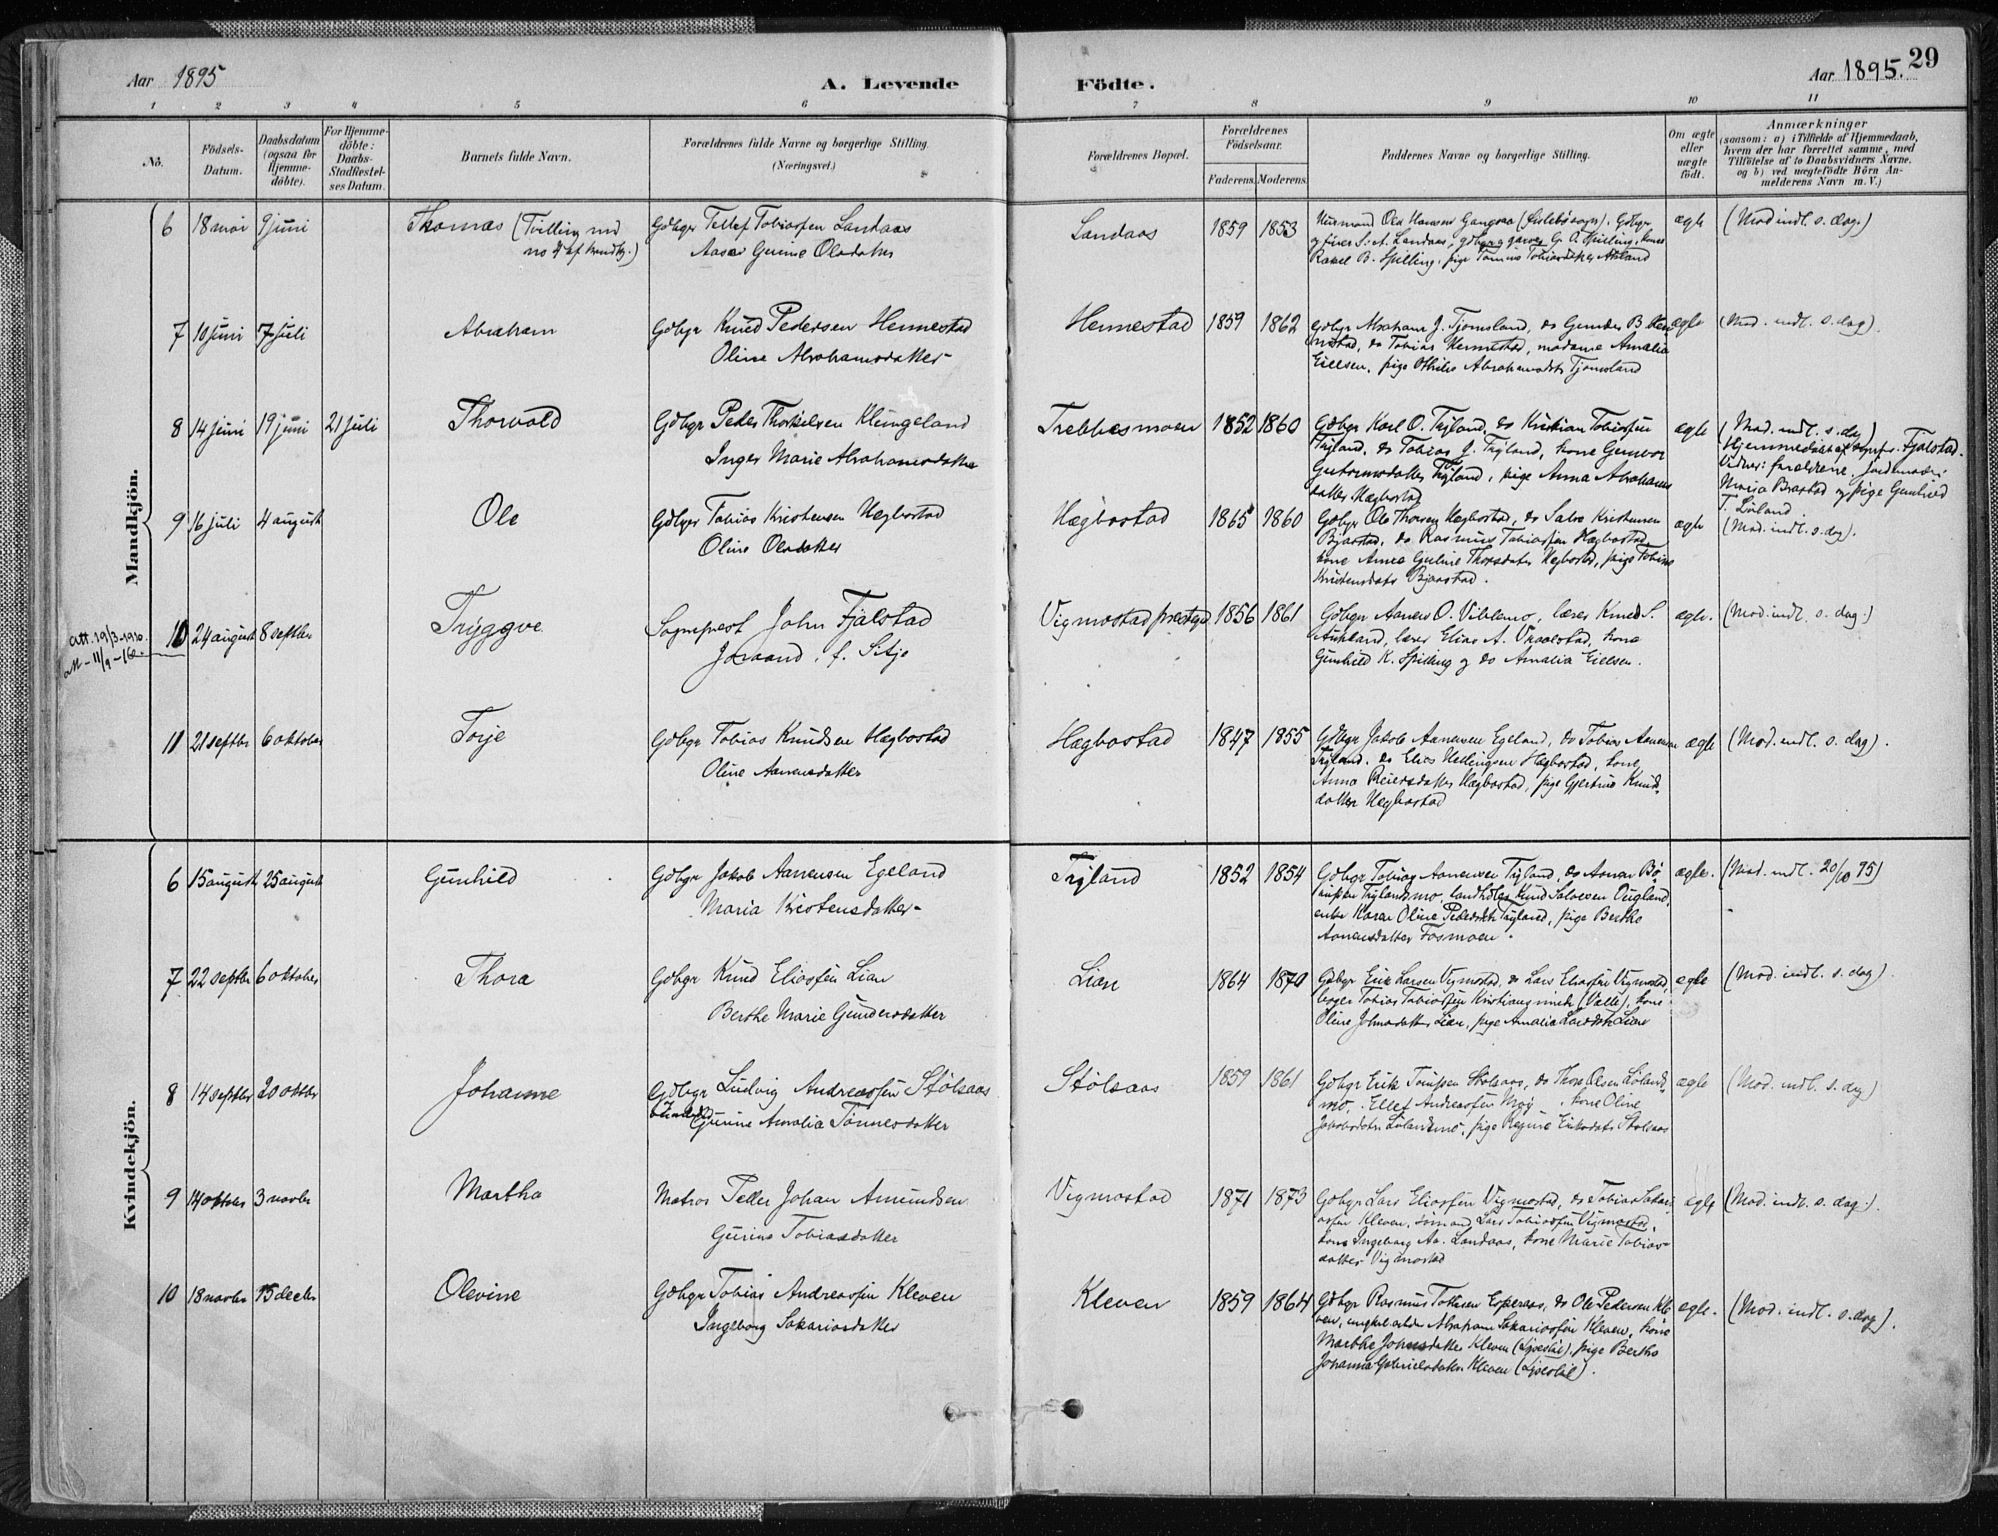 Aar 1895
A. Levende
Födte.
Aar 1895.
29
1 2 3 4 5 6 7 8 9 10 11
No.
Födsels-
Datum.
Daabsdatum
(ogsaa for
Hjemme-
döbte).
For Hjemme-
döbte:
Daabs-
Stadfæstel-
ses Datum.
Barnets fulde Navn.
Forældrenes fulde Navne og borgerlige Stilling.
(Næringsvei.)
Forældrenes Bopæl.
Forældrenes
Födselsaar.
Faderens. Moderens.
Faddernes Navne og borgerlige Stilling.
Om ægte
eller
uægte
födt.
Anmærkninger
(saasom: a) i Tilfælde af Hjemmedaab,
hvem der har forrettet samme, med
Tilföielse af to Daabsvidners Navne.
og b) ved uægtefödte Börn An-
melderens Navn m. V.)
Mandkjön.
6 18 mai 9 juni
Thomas (Tvilling med
no 4 af kvindkj.)
Gdbgr Tellef Tobiassen Landaas
Aase Gurine Olsdatter
Landaas 1859 1853
Husmand Ole Hansen
Landaas, G. O. Spilling, kone
Rakel B. Spilling, pige
ægte (Mod indl. s. dag.)
7 10 juni 7 juli
Abraham
Gdbgr Knud Pedersen Hennestad
Oline Abrahamsdatter
Hennestad 1859 1862
Gdbgr Abraham J. Tjomsland, do Gunder B. Hen-
nestad, do Tobias Hennestad, madame Amalia
Eielsen, pige Othilie Abrahamsdtr Tjomsland
ægte (Mod. indl. s. dag).
8 14 juni 19 juni 21 juli
Thorvald
Gdbgr Peder Thorkelsen Klungeland
Inger Marie Abrahamsdatter
Trebbesmoen 1852 1860
Gdbgr Karl O. Tryland, do Kristian Tobiassen
Tryland, do Tobias J. Tryland, kone Gunvor
Guttormsdatter Tryland, pige Anna Abrahams-
datter Hægbostad
ægte (Mod. indl. s. dag)
Hjemmedøbt af sognepr. Fjalstad.
Vidner: forældrene, jordemoder
Maria Brastad og pige Gunhild
T. Liuland
9 16 juli 4 august
Ole
Gdbgr Tobias Kristensen Hægbostad
Oline Olsdatter
Hægbostad 1865 1860
Gdbgr Ole Thorsen Hægbostad, do Salve Kristensen
Bjaastad, do Rasmus Tobiassen Hægbostad,
kone Anne Guline Thorsdatter Hægbostad, pige Tobine
Kristensdatr Bjaastad.
ægte (Mod. indl. s. dag).
att. 19/3-1910.
att - 11/9-16.
10 24 august 8 septbr
Tryggve
Sognepræst John Fjalstad
Joraand, f. Sitje
Vigmostad prestegd 1856 1861
Gdbgr Aanen O. Viblemo, lærer Knud S.
Aukland, lærer Elias A. kone
Gunhild K. Spilling og do Amalia Eielsen.
ægte. (Mod. indl. s. dag.)
11 21 septbr 6 oktober
Torje
Gdbgr Tobias Knudsen Hægbostad
Oline Aanensdatter
Hægbostad 1847 1855
Gdbgr Jakob Aanensen Egeland, do Tobias Aanensen
Tryland, do Elias Hægbostad, kone
Anna Reiersdatter Hægbostad, pige Gjertine Knuds-
datter Hægbostad
ægte (Mod. indl. s. dag).
Kvindekjön.
6 15 august 25 august
Gunhild
Gdbgr Jakob Aanensen Egeland
Maria Kristensdatter
Tryland 1852 1854
Gdbgr Tobias Aanensen Tryland, do Aanen Bø-
Trylandsmo, landhdlr Knud Salvesen Øugland,
enke Karen Oline Pedersdtr Tryland, pige Berthe
Aanensdatter Fosmoen.
ægte. (Mod. indl. 20/10 95)
7 22 septbr 6 oktober
Thora
Gdbgr Knud Eliassen Lian
Berthe Marie Gundersdatter
Lian 1864 1870
Gdbgr Erik Larsen Vigmostad, do Lars Eliassen Vigmostad,
Tobias Tobiassen Kristiansminde (Valle), kone
Oline Johnsdatter Lian, pige Amalia Larsdtr Lian
ægte (Mod. indl. s. dag).
8 14 septbr 20 oktbr
Johanne
Gdbgr Ludvig Andreassen Stølsaas
Gurine Amalia Tønnesdatter
Stølsaas 1859 1861
Gdbgr Erik Tønnessen Stølsaas, do Thore Olsen Løland-
mo, Ellef Andreassen Møy, kone Oline
Jakobsdtr Lølandsmo, pige Regine Eriksdatr Stølsaas
ægte (Mod. indl. s. dag)
9 14 oktober 3 novbr
Martha
Matros Peder Johan Amundsen
Gurine Tobiasdatter
Vigmostad 1871 1873
Gdbgr Lars Eliassen Vigmostad, do Tobias Sakari-
assen Kleven, sømand Lars Tobiassen Vigmostad,
kone Ingeborg Aa. Landaas, kone Marie Tobias-
datter Vigmostad
ægte (Mod. indl. s. dag.)
10 18 novbr 15 decbr
Olevine
Gdbgr Tobias Andreassen Kleven
Ingeborg Sakariasdatter
Kleven 1859 1864
Gdbgr Rasmus Espeaas, do Ole Pedersen Kle-
ven, ungkarl Abraham Sakariassen Kleven, kone
Marthe Johnsdatter Kleven (Ljosstøl), pige Berthe
Johanne Gabrielsdatter Kleven (Ljosstøl).
ægte. (Mod. indl. s. dag).